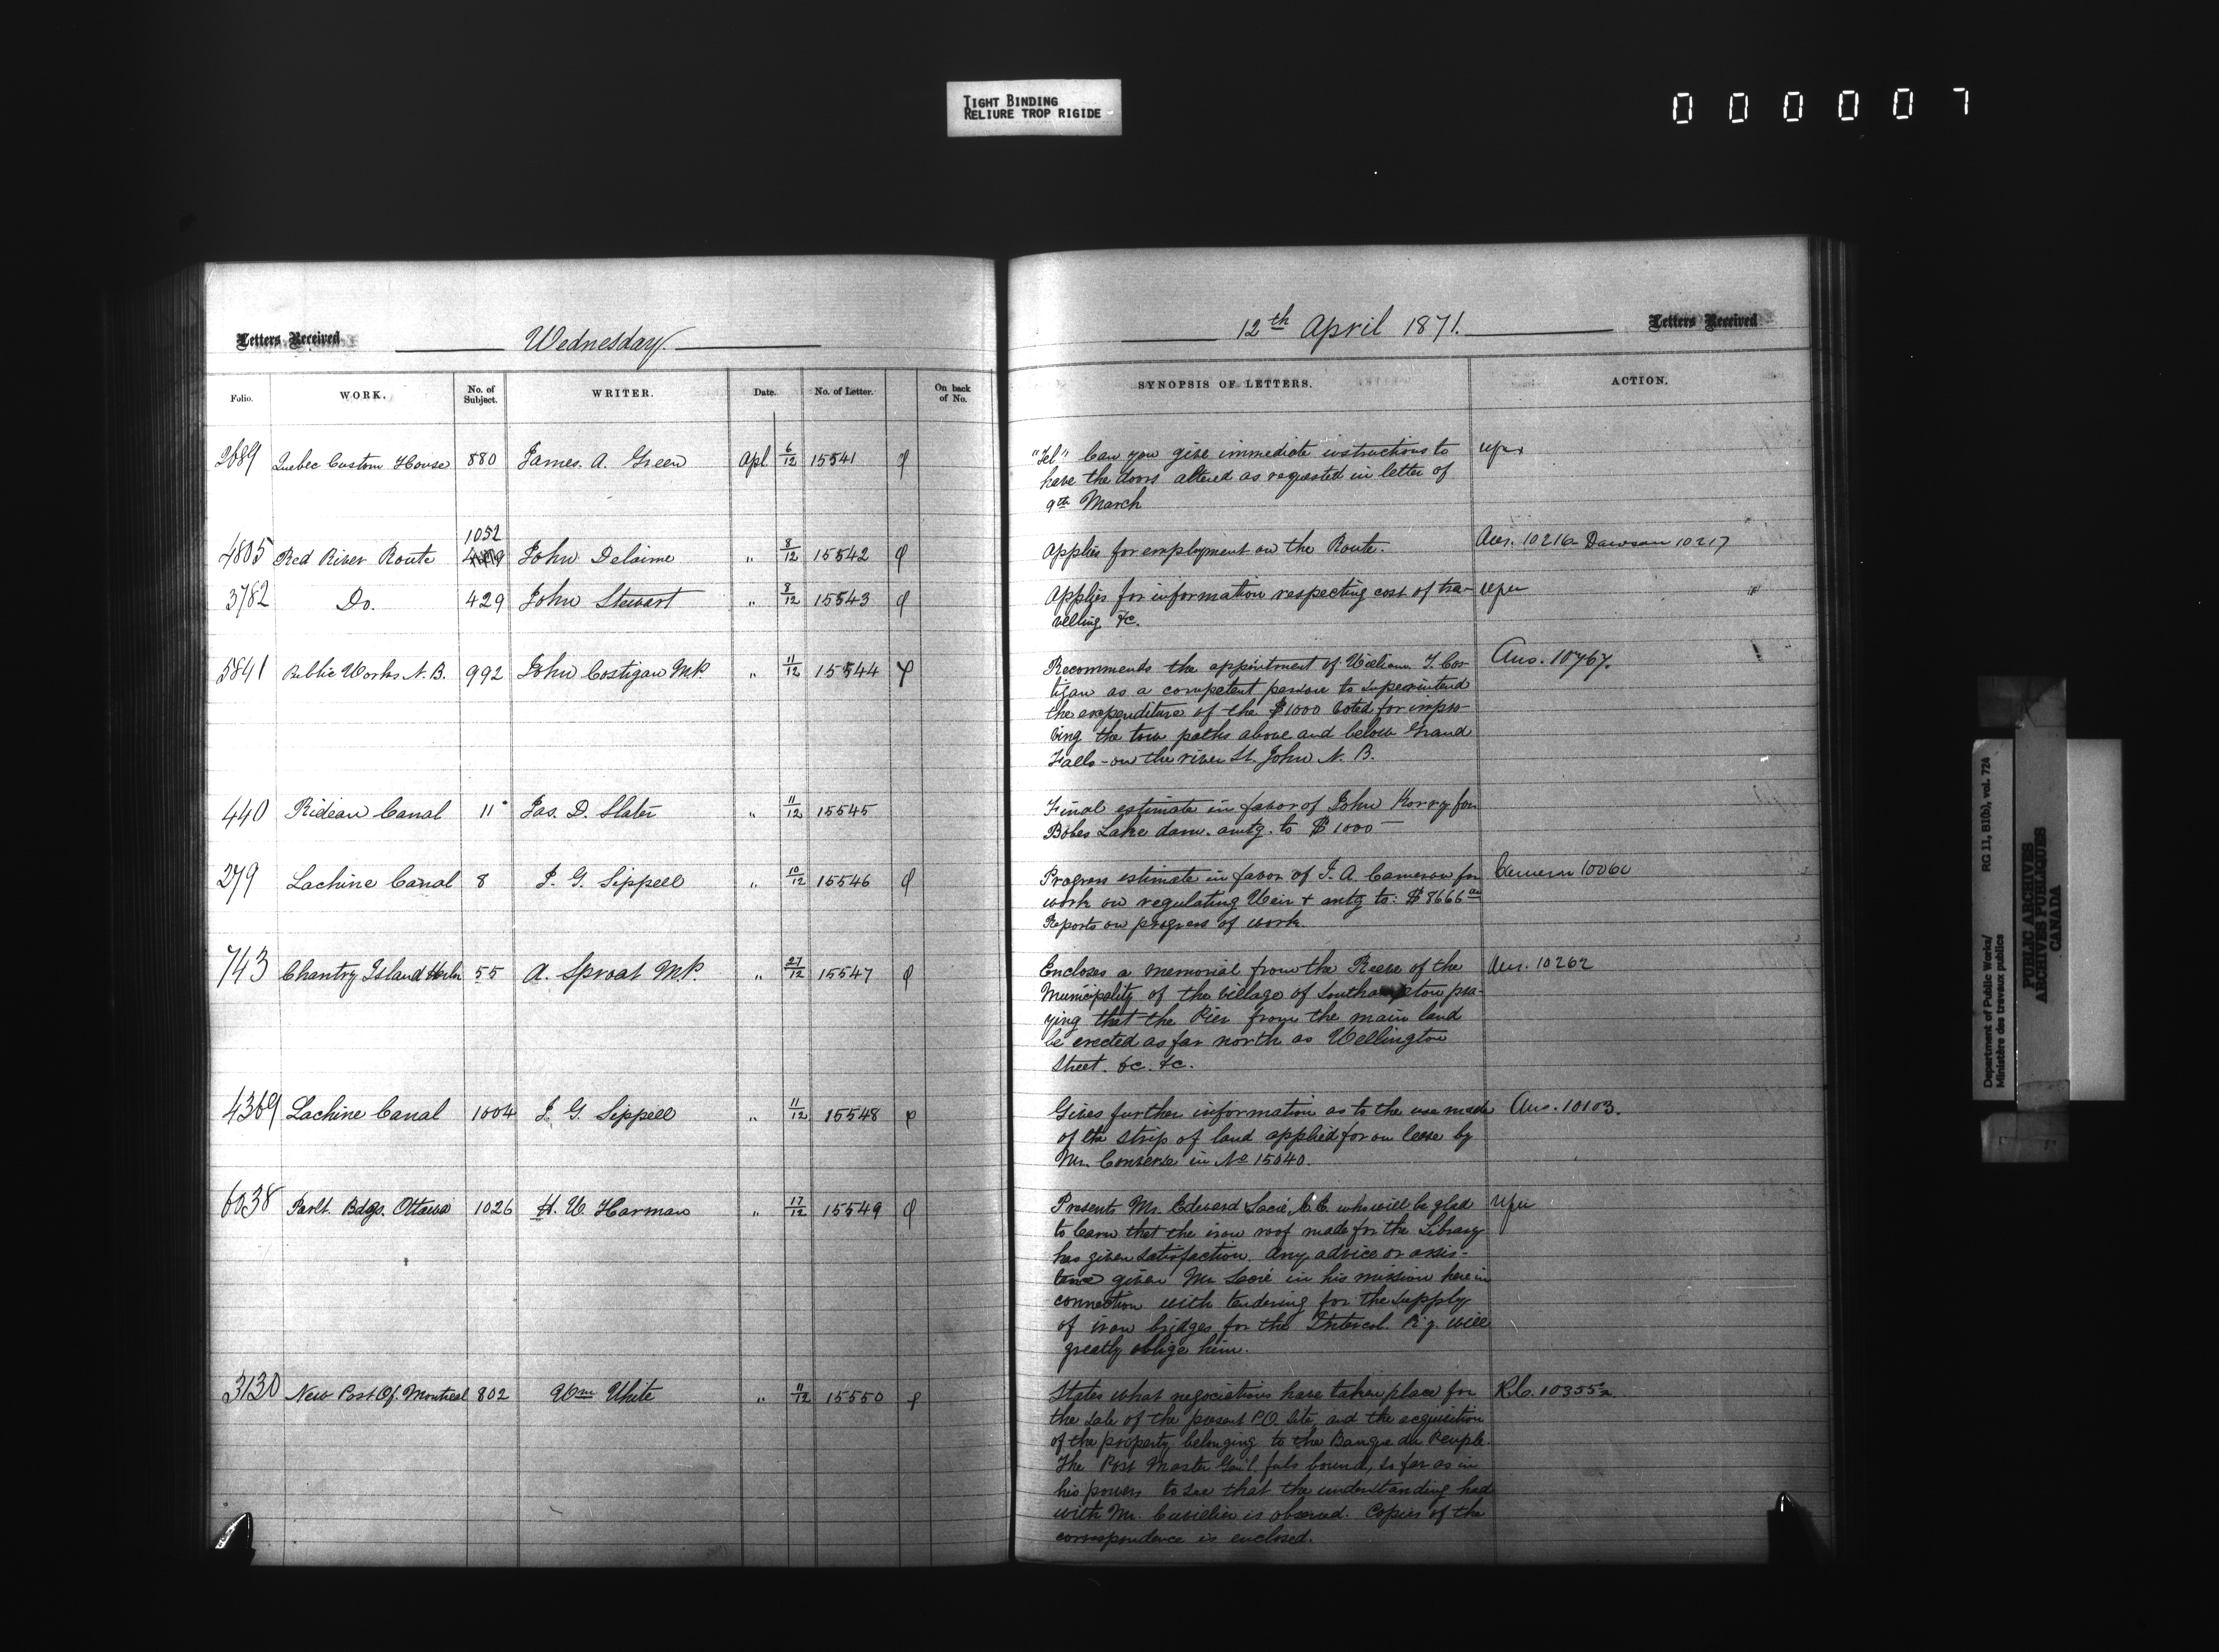 TIGHT BINDING
RELIURE TROP RIGIDE
000007
Letters Received
Wednesday
12th April 1871.
Letters Received
Folio.
WORK.
No. of Subject.
WRITER.
Date.
No. of Letter.
On back of No.
SYNOPSIS OF LETTERS.
ACTION.
2689 Quebec Custom House 880 James. A. Green Apl. 6/12 15541
"Tel" Can you give immediate instructions to
have the doors altered as requested in letter of
9th March
1052
4805 Red River Route John Delaime " 8/12 15542
Applies for employment on the Route. Ans. 10216 Dawson 10217
3782 Do. 429 John Stewart " 8/12 15543
Applies for information respecting cost of tra-
velling &c.
5841 Public Works N.B. 992 John Costigan M.P. " 11/12 15544
Recommends the appointment of William T. Cos- Ans. 10767.
tigan as a competent person to superintend
the expenditure of the $1000 voted for impro-
ving the tow paths above and below Grand
Falls - on the river St. John N. B.
440 Rideau Canal 11 Jas. D. Slater " 11/12 15545
Final estimate in favor of John Korry for
Bobs Lake dam. amtg. to $1000 —
279 Lachine Canal 8 J. G. Sippell " 10/12 15546
Progress estimate in favor of J. A. Cameron for Cameron 10060
work on regulating Weir & amtg to: $8666
Reports on progress of work.
743 Chantry Island Harbr 55 A. Sproat M.P. " 27/12 15547
Encloses a memorial from the Reeve of the Ans. 10262
Municipality of the village of Southampton pra-
ying that the Pier from the main land
be erected as far north as Wellington
Street. &c. &c.
4369 Lachine Canal 1004 J. G. Sippell " 11/12 15548
Gives further information as to the use made Ans. 10103.
of the strip of land applied for on lease by
Mr. Converse in No 15040.
6038 Parlt. Bdgs. Ottawa 1026 H. W. Harman " 17/12 15549
Presents Mr. Edward Sacré, C.E. who will be glad
to learn that the iron roof made for the Library
has given satisfaction. Any advice or assis-
tance given Mr Sacré in his mission here in
connection with tendering for the supply
of iron bridges for the Intercol. Ry. will
greatly oblige him.
3130 New Post Of. Montreal 802 Wm White " 11/12 15550
States what negociations have taken place for R.C. 10355
the sale of the present P.O. site, and the acquisition
of the property belonging to the Banque du Peuple.
The Post Master Gen'l. feels bound, so far as in
his powers to see that the understanding had
with Mr. Cuvillier is observed. Copies of the
correspondence is enclosed.
Department of Public Works/
Ministère des travaux publics
RG 11, B1(b), vol. 724
PUBLIC ARCHIVES
ARCHIVES PUBLIQUES
CANADA